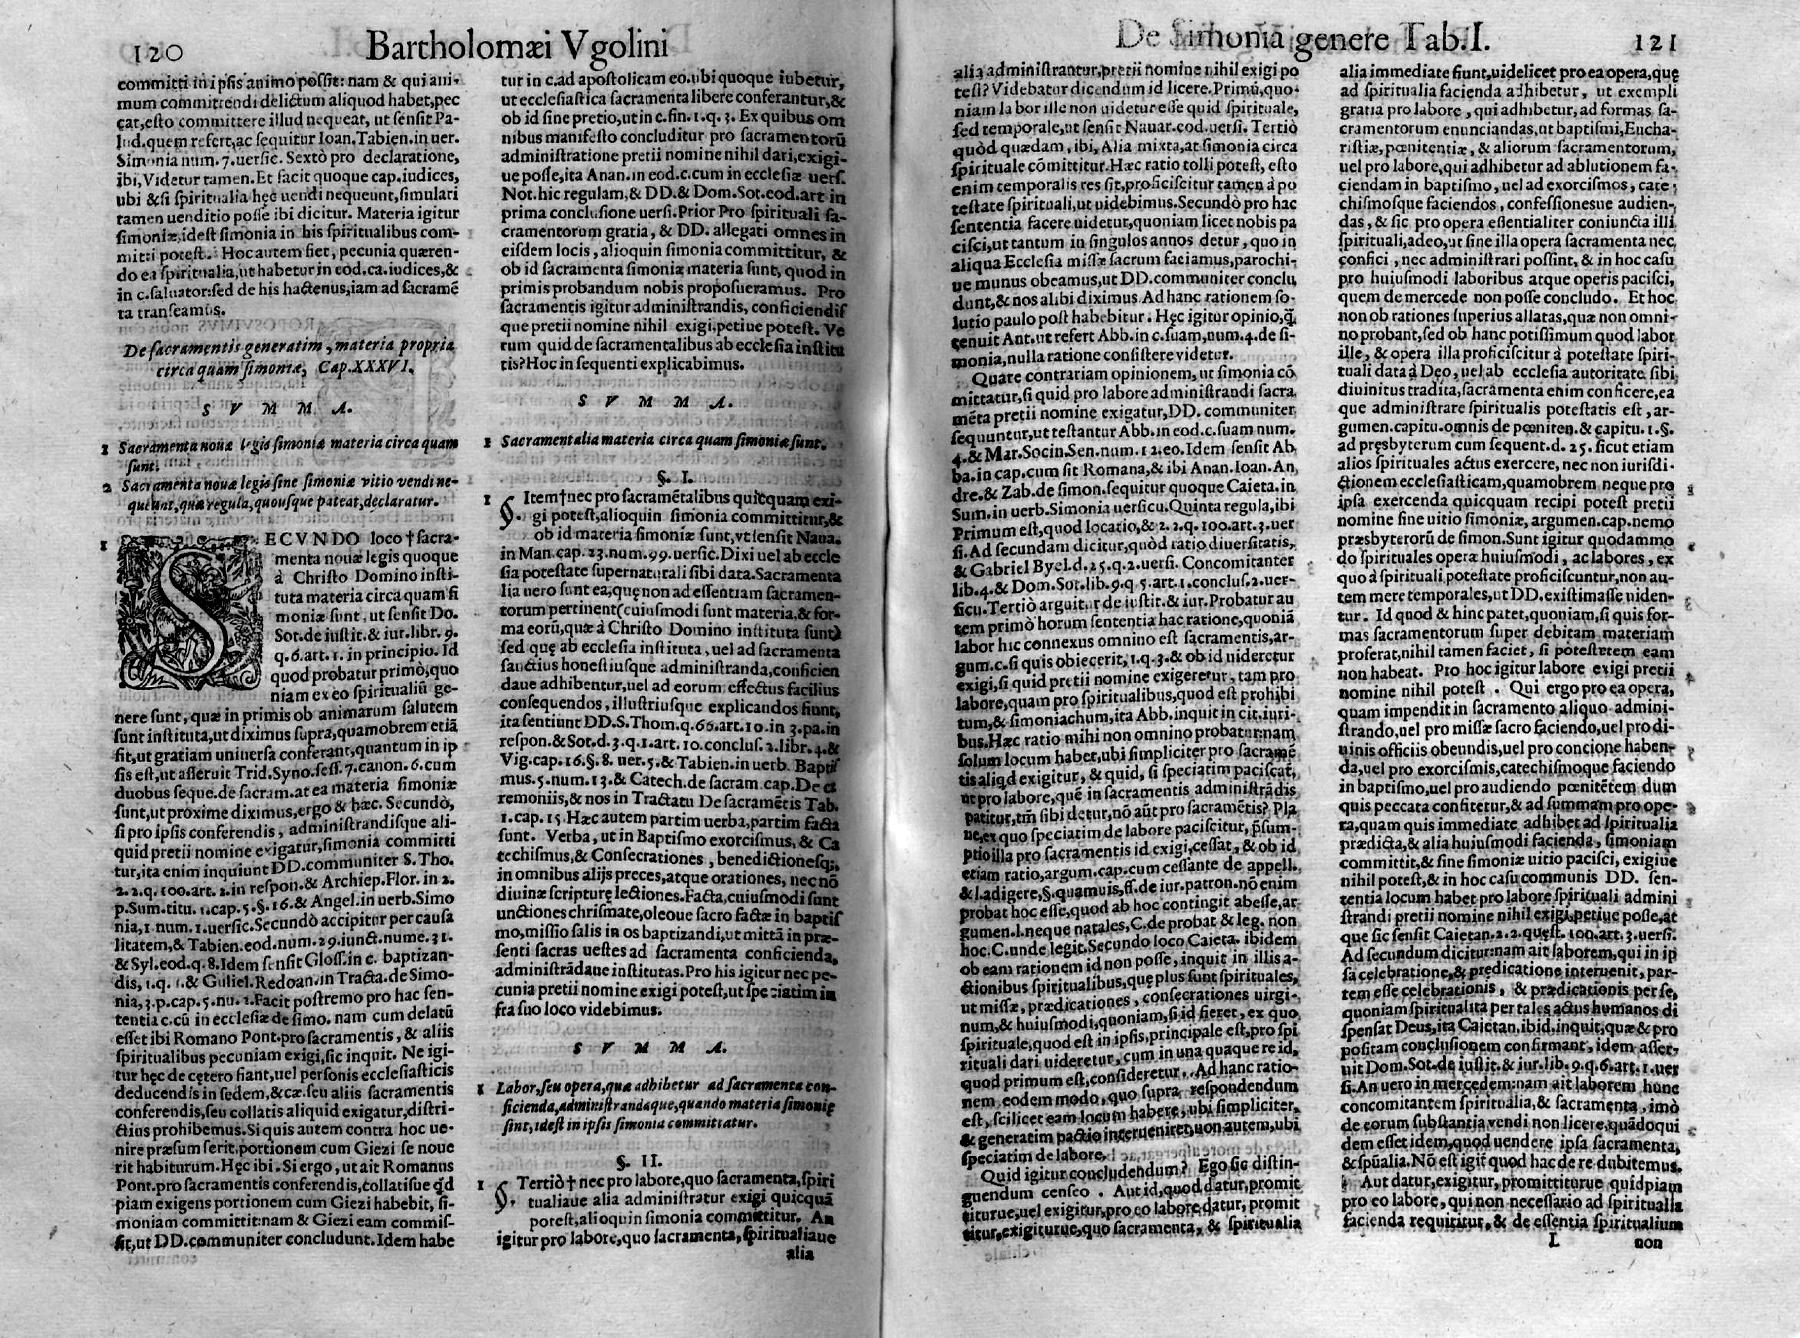 120 Bartholomæi Vgolini
committi in ipsis animo possit: nam & qui ani-
mum committendi delictum aliquod habet, pec
cat, esto committere illud nequeat, ut sensit Pa-
lud. quem refert, ac sequitur Ioan. Tabien. in uer.
Simonia num. 7. uersic. Sextò pro declaratione,
ibi, Videtur tamen. Et facit quoque cap. iudices,
ubi & si spiritualia hęc uendi nequeunt, simulari
tamen uenditio posse ibi dicitur. Materia igitur
simoniæ, idest simonia in his spiritualibus com-
mitti potest. Hoc autem fiet, pecunia quæren-
do ea spiritualia, ut habetur in eod. ca. iudices, &
in c. saluator: sed de his hactenus, iam ad sacramē
ta transeamus.
De sacramentis generatim, materia propria
circa quam simoniæ, Cap. XXXVI.
S V M M A.
1 Sacramenta nouæ legis simoniæ materia circa quam
sunt.
2 Sacramenta nouæ legis sine simoniæ vitio vendi ne-
queunt, quæ regula, quousque pateat, declaratur.
1 SECVNDO loco † sacra-
menta nouæ legis quoque
à Christo Domino insti-
tuta materia circa quam si
moniæ sunt, ut sensit Do.
Sot. de iustit. & iur. libr. 9.
q. 6. art. 1. in principio. Id
quod probatur primò, quo
niam ex eo spiritualiū ge-
nere sunt, quæ in primis ob animarum salutem
sunt instituta, ut diximus supra, quamobrem etiā
fit, ut gratiam uniuersa conferant, quantum in ip
sis est, ut asseruit Trid. Syno. sess. 7. canon. 6. cum
duobus seque. de sacram. at ea materia simoniæ
sunt, ut proxime diximus, ergo & hæc. Secundò,
si pro ipsis conferendis, administrandisque ali-
quid pretii nomine exigatur, simonia committi
tur, ita enim inquiunt DD. communiter S. Tho.
2. 2. q. 100. art. 2. in respon. & Archiep. Flor. in 2.
p. Sum. titu. 1. cap. 5. §. 16. & Angel. in uerb. Simo
nia, 1. num. 1. uersic. Secundò accipitur per causa
litatem, & Tabien. eod. num. 29. iunct. nume. 31.
& Syl. eod. q. 8. Idem sensit Gloss. in c. baptizan-
dis, 1. q. 1. & Guliel. Redoan. in Tracta. de Simo-
nia, 3. p. cap. 5. nu. 2. Facit postremo pro hac sen-
tentia c. cū in ecclesiæ de simo. nam cum delatū
esset ibi Romano Pont. pro sacramentis, & aliis
spiritualibus pecuniam exigi, sic inquit. Ne igi-
tur hęc de cętero fiant, uel personis ecclesiasticis
deducendis in sedem, &cæ. seu aliis sacramentis
conferendis, seu collatis aliquid exigatur, distri-
ctius prohibemus. Si quis autem contra hoc ue-
nire præsumserit, portionem cum Giezi se noue
rit habiturum. Hęc ibi. Si ergo, ut ait Romanus
Pont. pro sacramentis conferendis, collatisue qd
piam exigens portionem cum Giezi habebit, si-
moniam committit: nam & Giezi eam commis-
sit, ut DD. communiter concludunt. Idem habe
tur in c. ad apostolicam eo. ubi quoque iubetur,
ut ecclesiastica sacramenta libere conferantur, &
ob id sine pretio, ut in c. fin. 1. q. 3. Ex quibus om
nibus manifesto concluditur pro sacramentorū
administratione pretii nomine nihil dari, exigi-
ue posse, ita Anan. in eod. c. cum in ecclesiæ uers.
Not. hic regulam, & DD. & Dom. Sot. eod. art in
prima conclusione uersi. Prior Pro spirituali sa-
cramentorum gratia, & DD. allegati omnes in
eisdem locis, alioquin simonia committitur, &
ob id sacramenta simoniæ materia sunt, quod in
primis probandum nobis proposueramus. Pro
sacramentis igitur administrandis, conficiendis
que pretii nomine nihil exigi, petiue potest. Ve
rum quid de sacramentalibus ab ecclesia institu
tis? Hoc in sequenti explicabimus.
S V M M A.
1 Sacramentalia materia circa quam simoniæ sunt.
§. I.
1 §. Item † nec pro sacramētalibus quicquam exi-
gi potest, alioquin simonia committitur, &
ob id materia simoniæ sunt, vt sensit Naua.
in Man. cap. 23. num. 99. uersic. Dixi uel ab eccle
sia potestate supernaturali sibi data. Sacramenta
lia uero sunt ea, quę non ad essentiam sacramen-
torum pertinent (cuiusmodi sunt materia, & for-
ma eorū, quæ à Christo Domino instituta sunt)
sed quę ab ecclesia instituta, uel ad sacramenta
sanctius honestiusque administranda, conficien
daue adhibentur, uel ad eorum effectus facilius
consequendos, illustriusque explicandos fiunt,
ita sentiunt DD. S. Thom. q. 66. art. 10. in 3. pa. in
respon. & Sot. d. 3. q. 1. art. 10. conclus. 2. libr. 4. &
Vig. cap. 16. §. 8. uer. 5. & Tabien. in uerb. Baptis
mus. 5. num. 13. & Catech. de sacram. cap. De ce
remoniis, & nos in Tractatu De sacramētis Tab.
1. cap. 15. Hæc autem partim uerba, partim facta
sunt. Verba, ut in Baptismo exorcismus, & Ca
techismus, & Consecrationes, benedictionesq;,
in omnibus alijs preces, atque orationes, nec nō
diuinæ scripturę lectiones. Facta, cuiusmodi sunt
unctiones chrismate, oleoue sacro factæ in baptis
mo, missio salis in os baptizandi, ut mittā in præ-
senti sacras uestes ad sacramenta conficienda,
administrādaue institutas. Pro his igitur nec pe-
cunia pretii nomine exigi potest, ut speciatim in
fra suo loco videbimus.
S V M M A.
1 Labor, seu opera, quæ adhibetur ad sacramenta con-
ficienda, administrandaque, quando materia simonię
sint, idest in ipsis simonia committatur.
§. II.
1 §. Tertiò † nec pro labore, quo sacramenta, spiri
tualiaue alia administratur exigi quicquā
potest, alioquin simonia committitur. An
igitur pro labore, quo sacramenta, spiritualiaue
alia
De Simonia genere Tab. I. 121
alia administrantur, pretii nomine nihil exigi po
test? Videbatur dicendum id licere. Primū, quo-
niam labor ille non uidetur esse quid spirituale,
sed temporale, ut sensit Nauar. eod. uersi. Tertiò
quòd quædam, ibi, Alia mixta, at simonia circa
spirituale cōmittitur. Hæc ratio tolli potest, esto
enim temporalis res sit, proficiscitur tamen à po
testate spirituali, ut uidebimus. Secundò pro hac
sententia facere uidetur, quoniam licet nobis pa
cisci, ut tantum in singulos annos detur, quo in
aliqua Ecclesia missæ sacrum faciamus, parochi-
ue munus obeamus, ut DD. communiter conclu
dunt, & nos alibi diximus Ad hanc rationem so-
lutio paulo post habebitur. Hęc igitur opinio, q̃
tenuit Ant. ut refert Abb. in c. suam, num. 4. de si-
monia, nulla ratione consistere videtur.
Quare contrariam opinionem, ut simonia cō
mittatur, si quid pro labore administrandi sacra
mēta pretii nomine exigatur, DD. communiter
sequuntur, ut testantur Abb. in eod. c. suam num.
4. & Mar. Socin. Sen. num. 12. eo. Idem sensit Ab
ba. in cap. cum sit Romana, & ibi Anan. Ioan. An,
dre. & Zab. de simon. sequitur quoque Caieta. in
Sum. in uerb. Simonia uersicu. Quinta regula, ibi
Primum est, quod locatio, & 2. 2. q. 100. art. 3. uer
si. Ad secundam dicitur, quòd ratio diuersitatis,
& Gabriel Byel. d. 25. q. 2. uersi. Concomitanter
lib. 4. & Dom. Sot. lib. 9. q. 5. art. 1. conclus. 2. uer-
sicu. Tertiò arguitur de iustit. & iur. Probatur au
tem primò horum sententia hac ratione, quoniā
labor hic connexus omnino est sacramentis, ar-
gum. c. si quis obiecerit, 1. q. 3. & ob id uideretur
exigi, si quid pretii nomine exigeretur, tam pro
labore, quam pro spiritualibus, quod est prohibi
tum, & simoniachum, ita Abb. inquit in cit. iuri-
bus. Hæc ratio mihi non omnino probatur: nam
solum locum habet, ubi simpliciter pro sacramē
tis aliqd exigitur, & quid, si speciatim paciscat,
ut pro labore, quē in sacramentis administrādis
patitur, tm̄ sibi detur, nō aūt pro sacramētis? Pla
ne, ex quo speciatim de labore paciscitur, p̄sum-
ptio illa pro sacramentis id exigi, cessat, & ob id
etiam ratio, argum. cap. cum cessante de appell.
& l. adigere, §. quamuis, ff. de iur. patron. nō enim
probat hoc esse, quod ab hoc contingit abesse, ar
gumen. l. neque natales, C. de probat & leg. non
hoc. C. unde legit. Secundo loco Caieta. ibidem
ob eam rationem id non posse, inquit in illis a-
ctionibus spiritualibus, quę plus sunt spirituales,
ut missæ, prædicationes, consecrationes uirgi-
num, & huiusmodi, quoniam, si id fieret, ex quo
spirituale, quod est in ipsis, principale est, pro spi
rituali dari uideretur, cum in una quaque re id,
quod primum est, consideretur. Ad hanc ratio-
nem eodem modo, quo supra respondendum
est, scilicet eam locum habere, ubi simpliciter,
& generatim pactio interueniret, non autem, ubi
speciatim de labore.
Quid igitur concludendum? Ego sic distin-
guendum censeo. Aut id, quod datur, promit
titurue, uel exigitur, pro eo labore datur, promit
titur, exigiturue, quo sacramenta, & spiritualia
alia immediate fiunt, uidelicet pro ea opera, quę
ad spiritualia facienda adhibetur, ut exempli
gratia pro labore, qui adhibetur, ad formas sa-
cramentorum enunciandas, ut baptismi, Eucha-
ristiæ, pœnitentiæ, & aliorum sacramentorum,
uel pro labore, qui adhibetur ad ablutionem fa-
ciendam in baptismo, uel ad exorcismos, cate-
chismosque faciendos, confessionesue audien-
das, & sic pro opera essentialiter coniuncta illi
spirituali, adeo, ut sine illa opera sacramenta nec
confici, nec administrari possint, & in hoc casu
pro huiusmodi laboribus atque operis pacisci,
quem de mercede non posse concludo. Et hoc
non ob rationes superius allatas, quæ non omni-
no probant, sed ob hanc potissimum quod labor
ille, & opera illa proficiscitur à potestate spiri-
tuali data à Deo, uel ab ecclesia autoritate sibi
diuinitus tradita, sacramenta enim conficere, ea
que administrare spiritualis potestatis est, ar-
gumen. capitu. omnis de pœniten. & capitu. 1. §.
ad pręsbyterum cum sequent. d. 25. sicut etiam
alios spirituales actus exercere, nec non iurisdi-
ctionem ecclesiasticam, quamobrem neque pro
ipsa exercenda quicquam recipi potest pretii
nomine sine uitio simoniæ, argumen. cap. nemo
præsbyterorū de simon. Sunt igitur quodammo
do spirituales operæ huiusmodi, ac labores, ex
quo à spirituali potestate proficiscuntur, non au-
tem mere temporales, ut DD. existimasse uiden-
tur. Id quod & hinc patet, quoniam, si quis for-
mas sacramentorum super debitam materiam
proferat, nihil tamen faciet, si potestatem eam
non habeat. Pro hoc igitur labore exigi pretii
nomine nihil potest. Qui ergo pro ea opera,
quam impendit in sacramento aliquo admini-
strando, uel pro missæ sacro faciendo, uel pro di-
uinis officiis obeundis, uel pro concione haben-
da, uel pro exorcismis, catechismoque faciendo
in baptismo, uel pro audiendo pœnitētem dum
quis peccata confitetur, & ad summam pro ope-
ra, quam quis immediate adhibet ad spiritualia
prædicta, & alia huiusmodi facienda, simoniam
committit, & sine simoniæ uitio pacisci, exigiue
nihil potest, & in hoc casu communis DD. sen-
tentia locum habet pro labore spirituali admini
strandi pretii nomine nihil exigi, petiue posse, at
que sic sensit Caietan. 2. 2. quęst. 100. art. 3. uersi.
Ad secundum dicitur: nam ait laborem, qui in ip
sa celebratione, & predicatione interuenit, par-
tem esse celebrationis, & prædicationis per se,
quoniam spiritualita per tales actus humanos di
spensat Deus, ita Caietan. ibid. inquit, quæ & pro
positam conclusionem confirmant, idem asser-
uit Dom. Sot. de iustit. & iur. lib. 9. q. 6. art. 1. uer
si. An uero in mercedem: nam ait laborem hunc
concomitantem spiritualia, & sacramenta, imò
de eorum substantia vendi non licere, quādoqui
dem esset idem, quod uendere ipsa sacramenta,
& spūalia. Nō est igit quod hac de re dubitemus.
Aut datur, exigitur, promittiturue quidpiam
pro eo labore, qui non necessario ad spiritualia
facienda requiritur, & de essentia spiritualium
L non